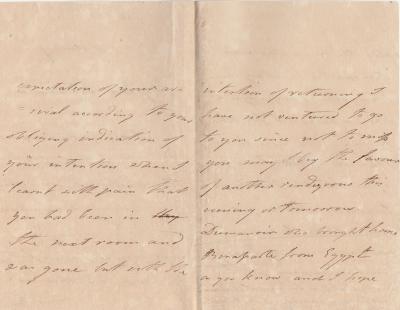 expectation of your ar-
=rival according to your
obliging indication of
your intention when I
learnt with pain that
you had been in
the next room and
was gone but with the
intention of returning I
have not ventured to go
to you since not to miss
you may I beg the favour
of another rendezvous this
evening or tomorrow
Dumanoir who brought home
Bonaparte from Egypt
as you know and I hope